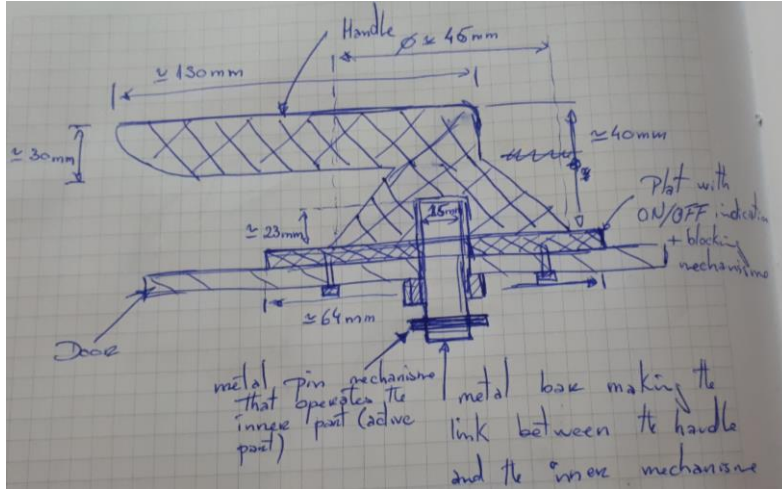 Handle
Ø ≃ 45mm
≃ 130mm
≃ 30mm
≃ 40mm
Plat with
ON/OFF indication
+ blocking
mechanisme
15mm
≃ 23mm
≃ 64mm
Door
metal pin mechanisme
that operates the
inner part (active
part)
metal bar making the
link between the handle
and the inner mechanisme